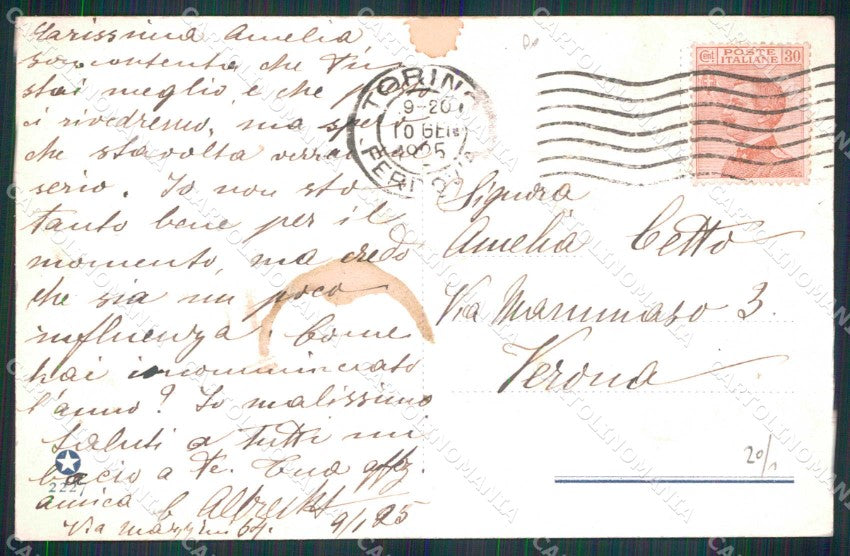 Carissima Amelia
son contenta che tu
stai meglio e che presto
ci rivedremo, ma spero
che stavolta verrai sul
serio. Io non sto
tanto bene per il
momento, ma credo
che sia un poco
influenza. Come
hai incominciato
l'anno? Io malissimo
Saluti a tutti mi
bacio a te. Tua affez.
amica E. Albrecht
Via Mazzini 64. 9/1 25
2227
TORINO
9-20
10 GEN
1925
FERROVIA
POSTE
ITALIANE
CENT 30
Signora
Amelia Cetto
Via Mammaso 3.
Verona
20/1
CARTOLINOMANIA